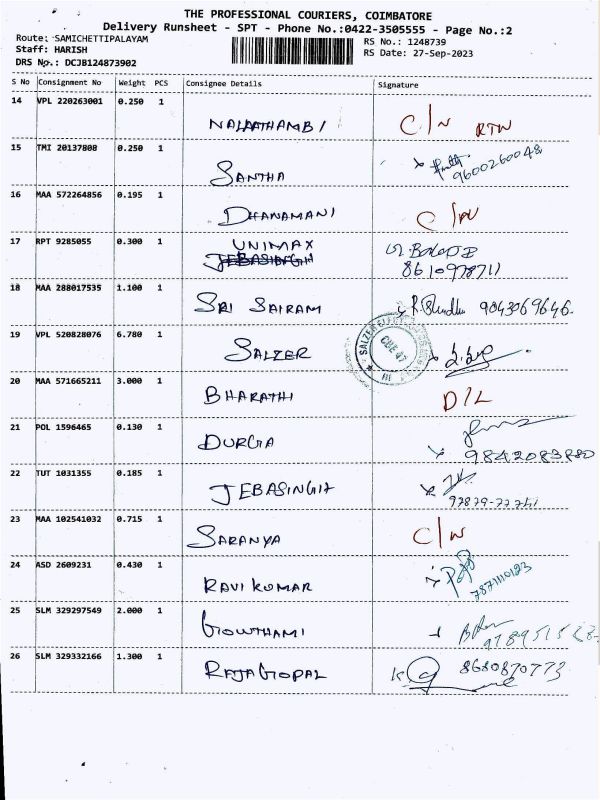 THE PROFESSIONAL COURIERS, COIMBATORE
Delivery Runsheet - SPT - Phone No.:0422-3505555 - Page No.:2
Route: SAMICHETTIPALAYAM RS No.: 1248739
Staff: HARISH RS Date: 27-Sep-2023
DRS No.: DCJB124873902
S No Consignment No Weight PCS Consignee Details Signature
14 VPL 220263001 0.250 1 NALLATHAMBI C/N RTN
15 TMI 20137808 0.250 1 SANTHA 9600260048
16 MAA 572264856 0.195 1 DHANAMANI
17 RPT 9285055 0.300 1 UNIMAX
JEBASINGH 8610978711
18 MAA 288017535 1.100 1 SRI SAIRAM 9043069646
19 VPL 520828076 6.780 1 SALZER SALZER CBE 47
20 MAA 571665211 3.000 1 BHARATHI D/L
21 POL 1596465 0.130 1 DURGA 9842083880
22 TUT 1031355 0.185 1 JEBASINGH
23 MAA 102541032 0.715 1 SARANYA C/N
24 ASD 2609231 0.430 1 RAVI KUMAR
25 SLM 329297549 2.000 1 GOWTHAMI
26 SLM 329332166 1.300 1 RAJAGOPAL 8680870773